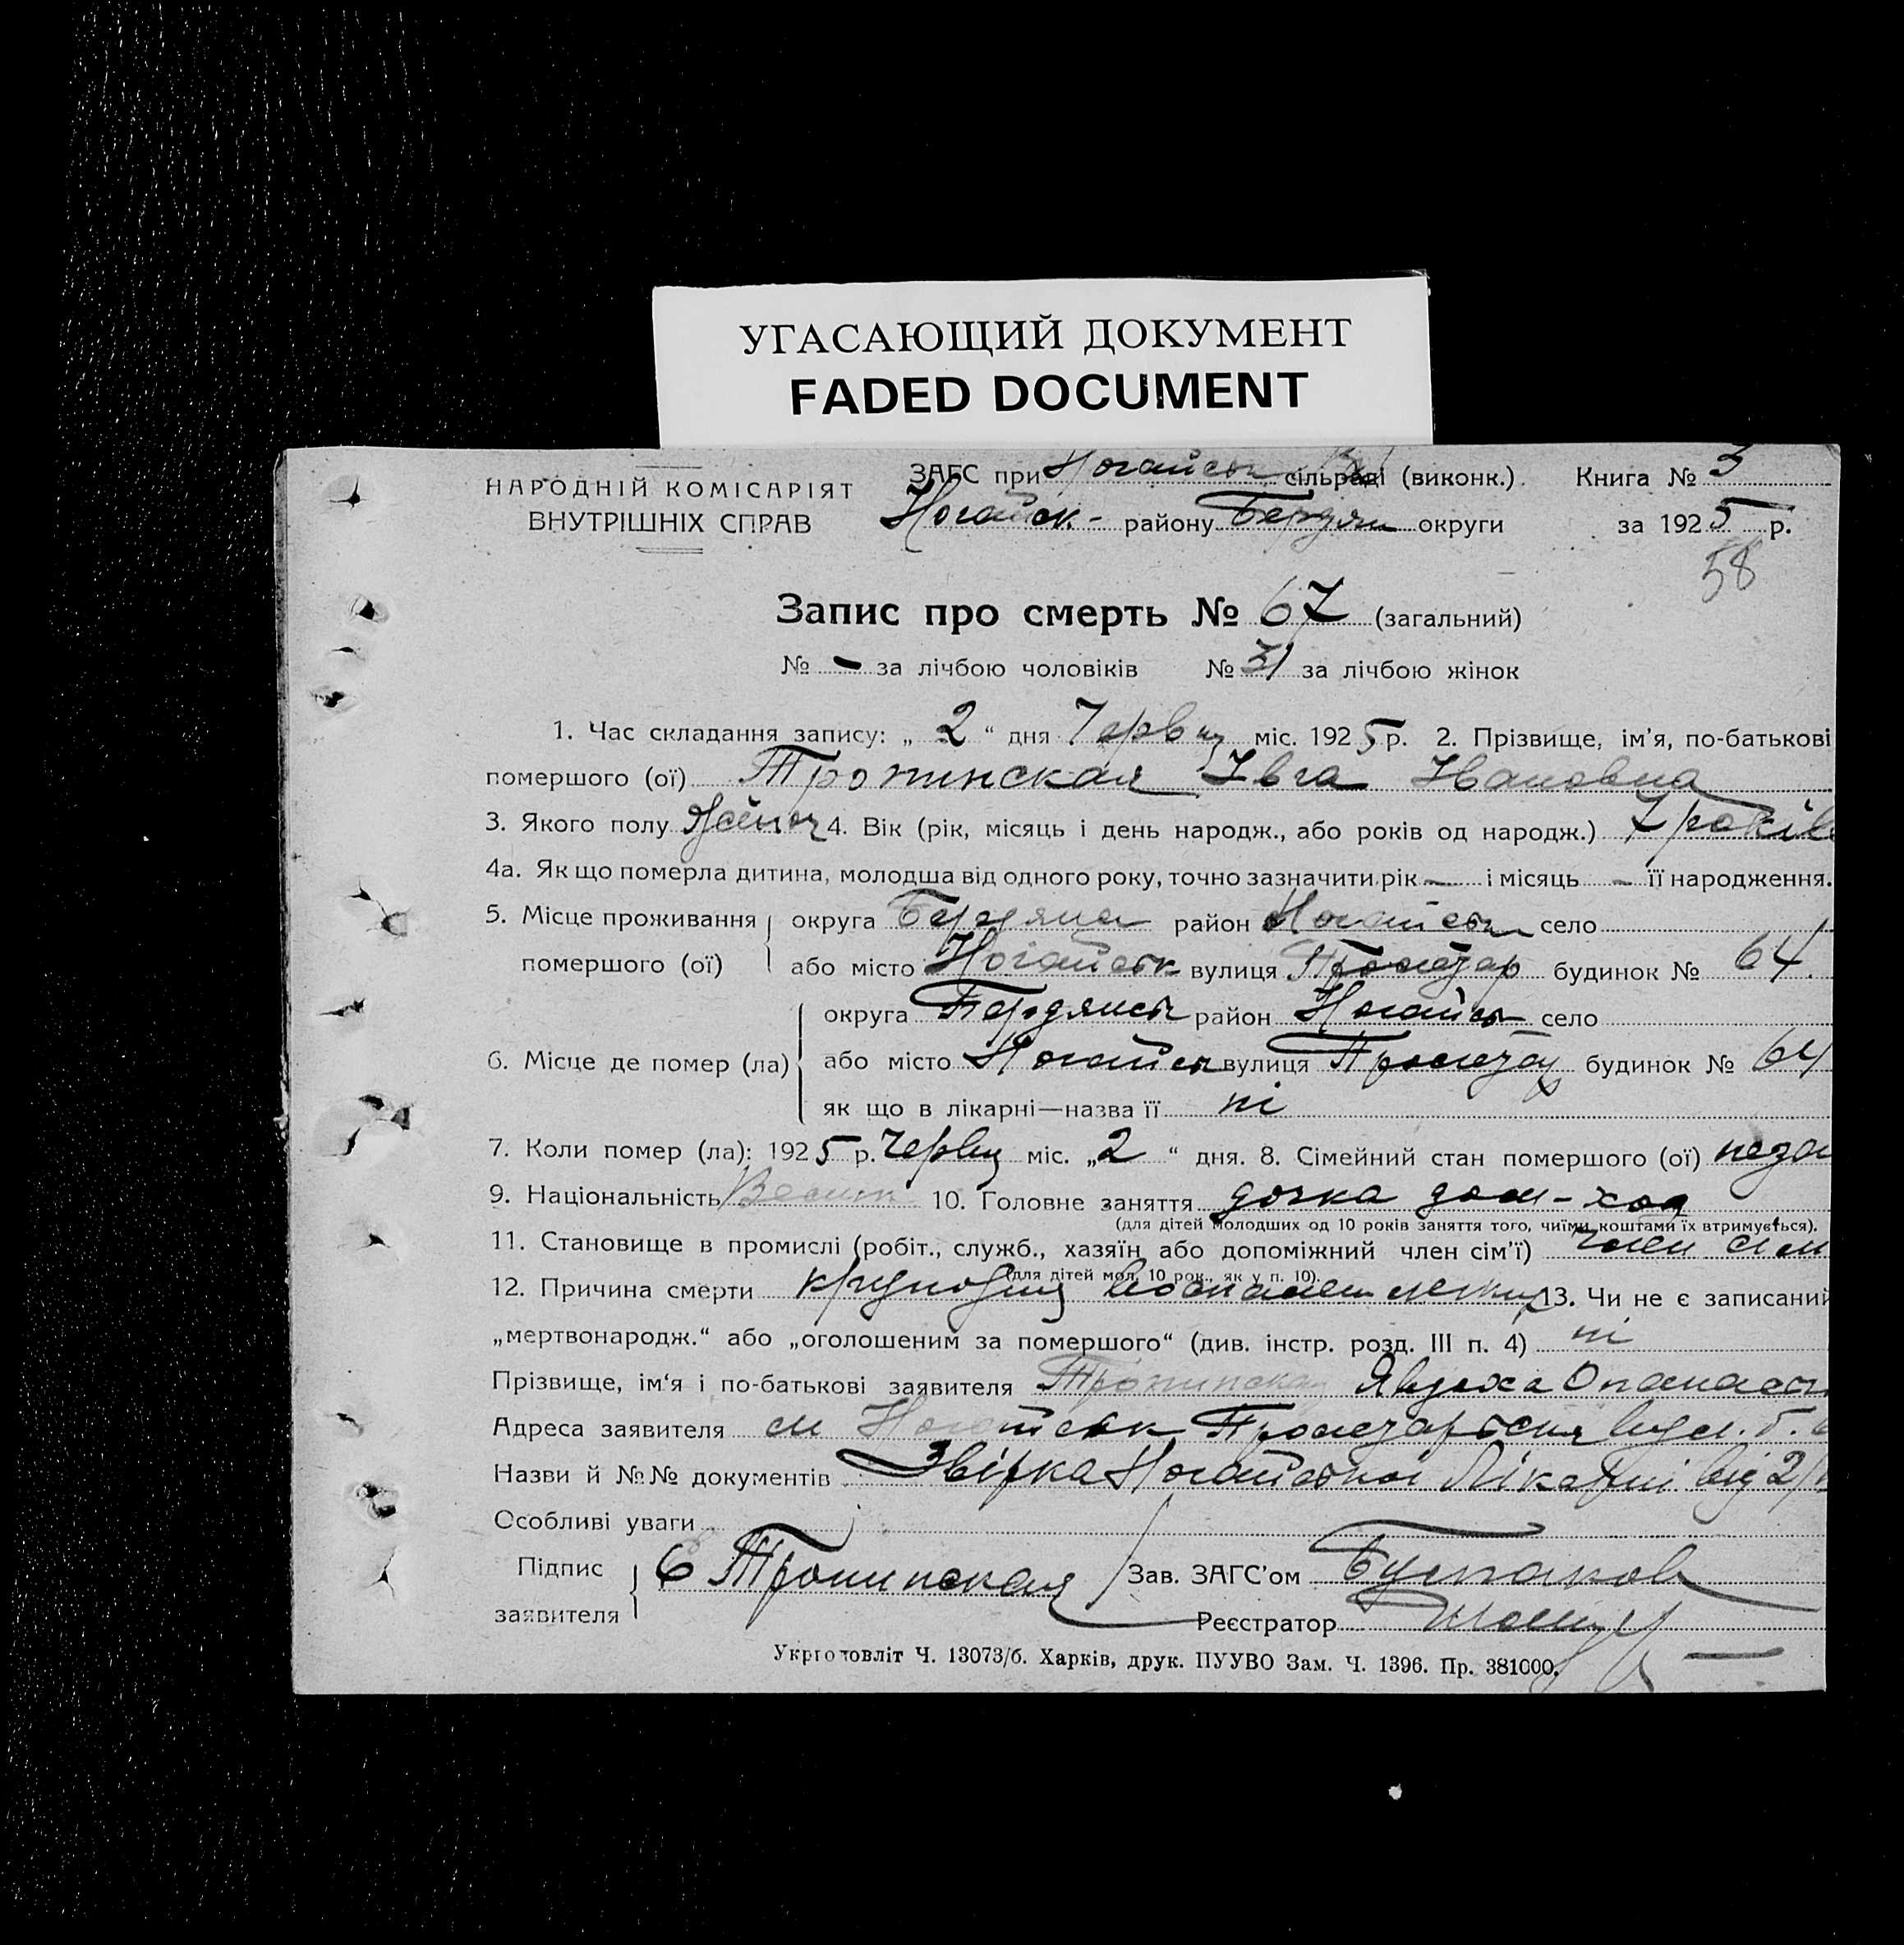 УГАСАЮЩИЙ ДОКУМЕНТ
FADED DOCUMENT
НАРОДНІЙ КОМІСАРІЯТ
ВНУТРІШНІХ СПРАВ
ЗАГС при Ногайськ сільраді (виконк.) Книга № 3
Ногайск- району Бердян округи за 1925 р.
58
Запис про смерть № 67 (загальний)
№ - за лічбою чоловіків № 31 за лічбою жінок
1. Час складання запису: „ 2 “ дня Червця міс. 1925 р. 2. Прізвище, ім'я, по-батькові
помершого (ої) Тропинская Ївга Ивановна
3. Якого полу 4. Вік (рік, місяць і день народж., або років од народж.) 7 років
4а. Як що померла дитина, молодша від одного року, точно зазначити рік — і місяць - її народження.
5. Місце проживання помершого (ої)
округа район Ногайськ село
або місто Ногайськ вулиця будинок № 64
6. Місце де помер (ла)
округа Бердянськ район Ногайськ село
або місто Ногайськ вулиця будинок № 64
як що в лікарні—назва її ні
7. Коли помер (ла): 1925 р. Червця міс. „2 “ дня. 8. Сімейний стан помершого (ої)
9. Національність 10. Головне заняття дочка дом-хоз
(для дітей молодших од 10 років заняття того, чиїми коштами їх втримується).
11. Становище в промислі (робіт., служб., хазяїн або допоміжний член сім'ї) член сім
(для дітей мол. 10 рок., як у п. 10).
12. Причина смерти 13. Чи не є записаний
„мертвонародж.“ або „оголошеним за помершого“ (див. інстр. розд. III п. 4) ні
Прізвище, ім'я і по-батькові заявителя Тропинская Явдоха Опанасов
Адреса заявителя м Ногайськ
Назви й №№ документів Звірка Ногайської Лікарні від 2/
Особливі уваги
Підпис заявителя Е Тропинская Зав. ЗАГС'ом
Реєстратор
Укрголовліт Ч. 13073/б. Харків, друк. ПУУВО Зам. Ч. 1396. Пр. 381000.